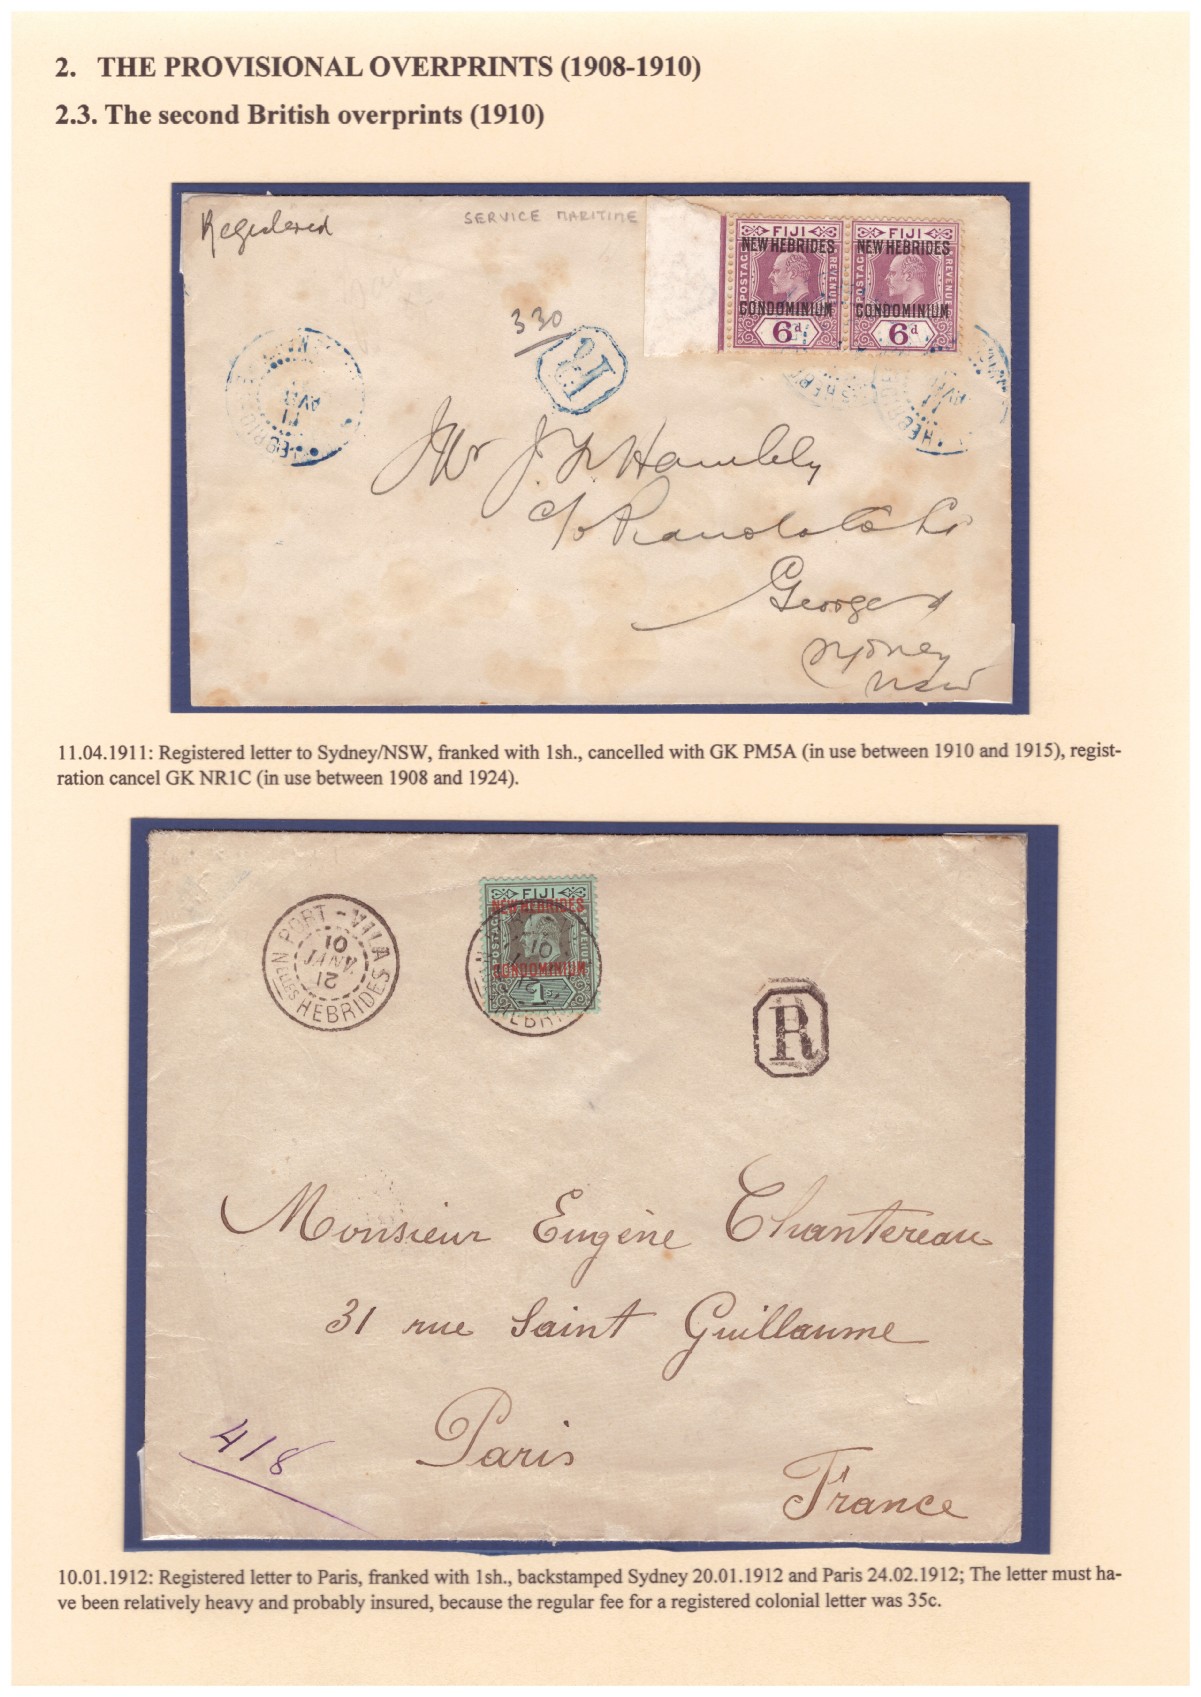 2. THE PROVISIONAL OVERPRINTS (1908-1910)
2.3. The second British overprints (1910)
Registered
SERVICE MARITIME
FIJI FIJI
NEW HEBRIDES NEW HEBRIDES
POSTAGE REVENUE POSTAGE REVENUE
CONDOMINIUM CONDOMINIUM
6d 6d
330
R
11
AVR
Mr J. N. Hambly
c/o
George St
Sydney
NSW
11.04.1911: Registered letter to Sydney/NSW, franked with 1sh., cancelled with GK PM5A (in use between 1910 and 1915), regist-
ration cancel GK NR1C (in use between 1908 and 1924).
PORT-VILA
10
JANV
12
Nelles HEBRIDES
FIJI
NEW HEBRIDES
POSTAGE REVENUE
CONDOMINIUM
1
R
Monsieur Eugène Chantereau
31 rue Saint Guillaume
Paris
France
418
10.01.1912: Registered letter to Paris, franked with 1sh., backstamped Sydney 20.01.1912 and Paris 24.02.1912; The letter must ha-
ve been relatively heavy and probably insured, because the regular fee for a registered colonial letter was 35c.